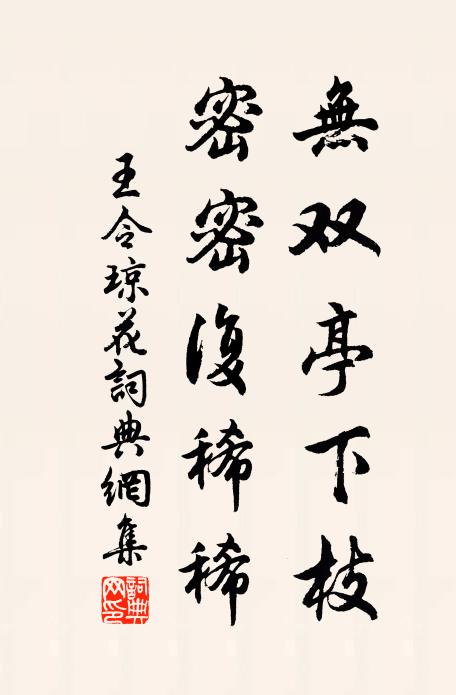 無双亭下枝
密密復稀稀
王令琼花詞典網集
詞典网印